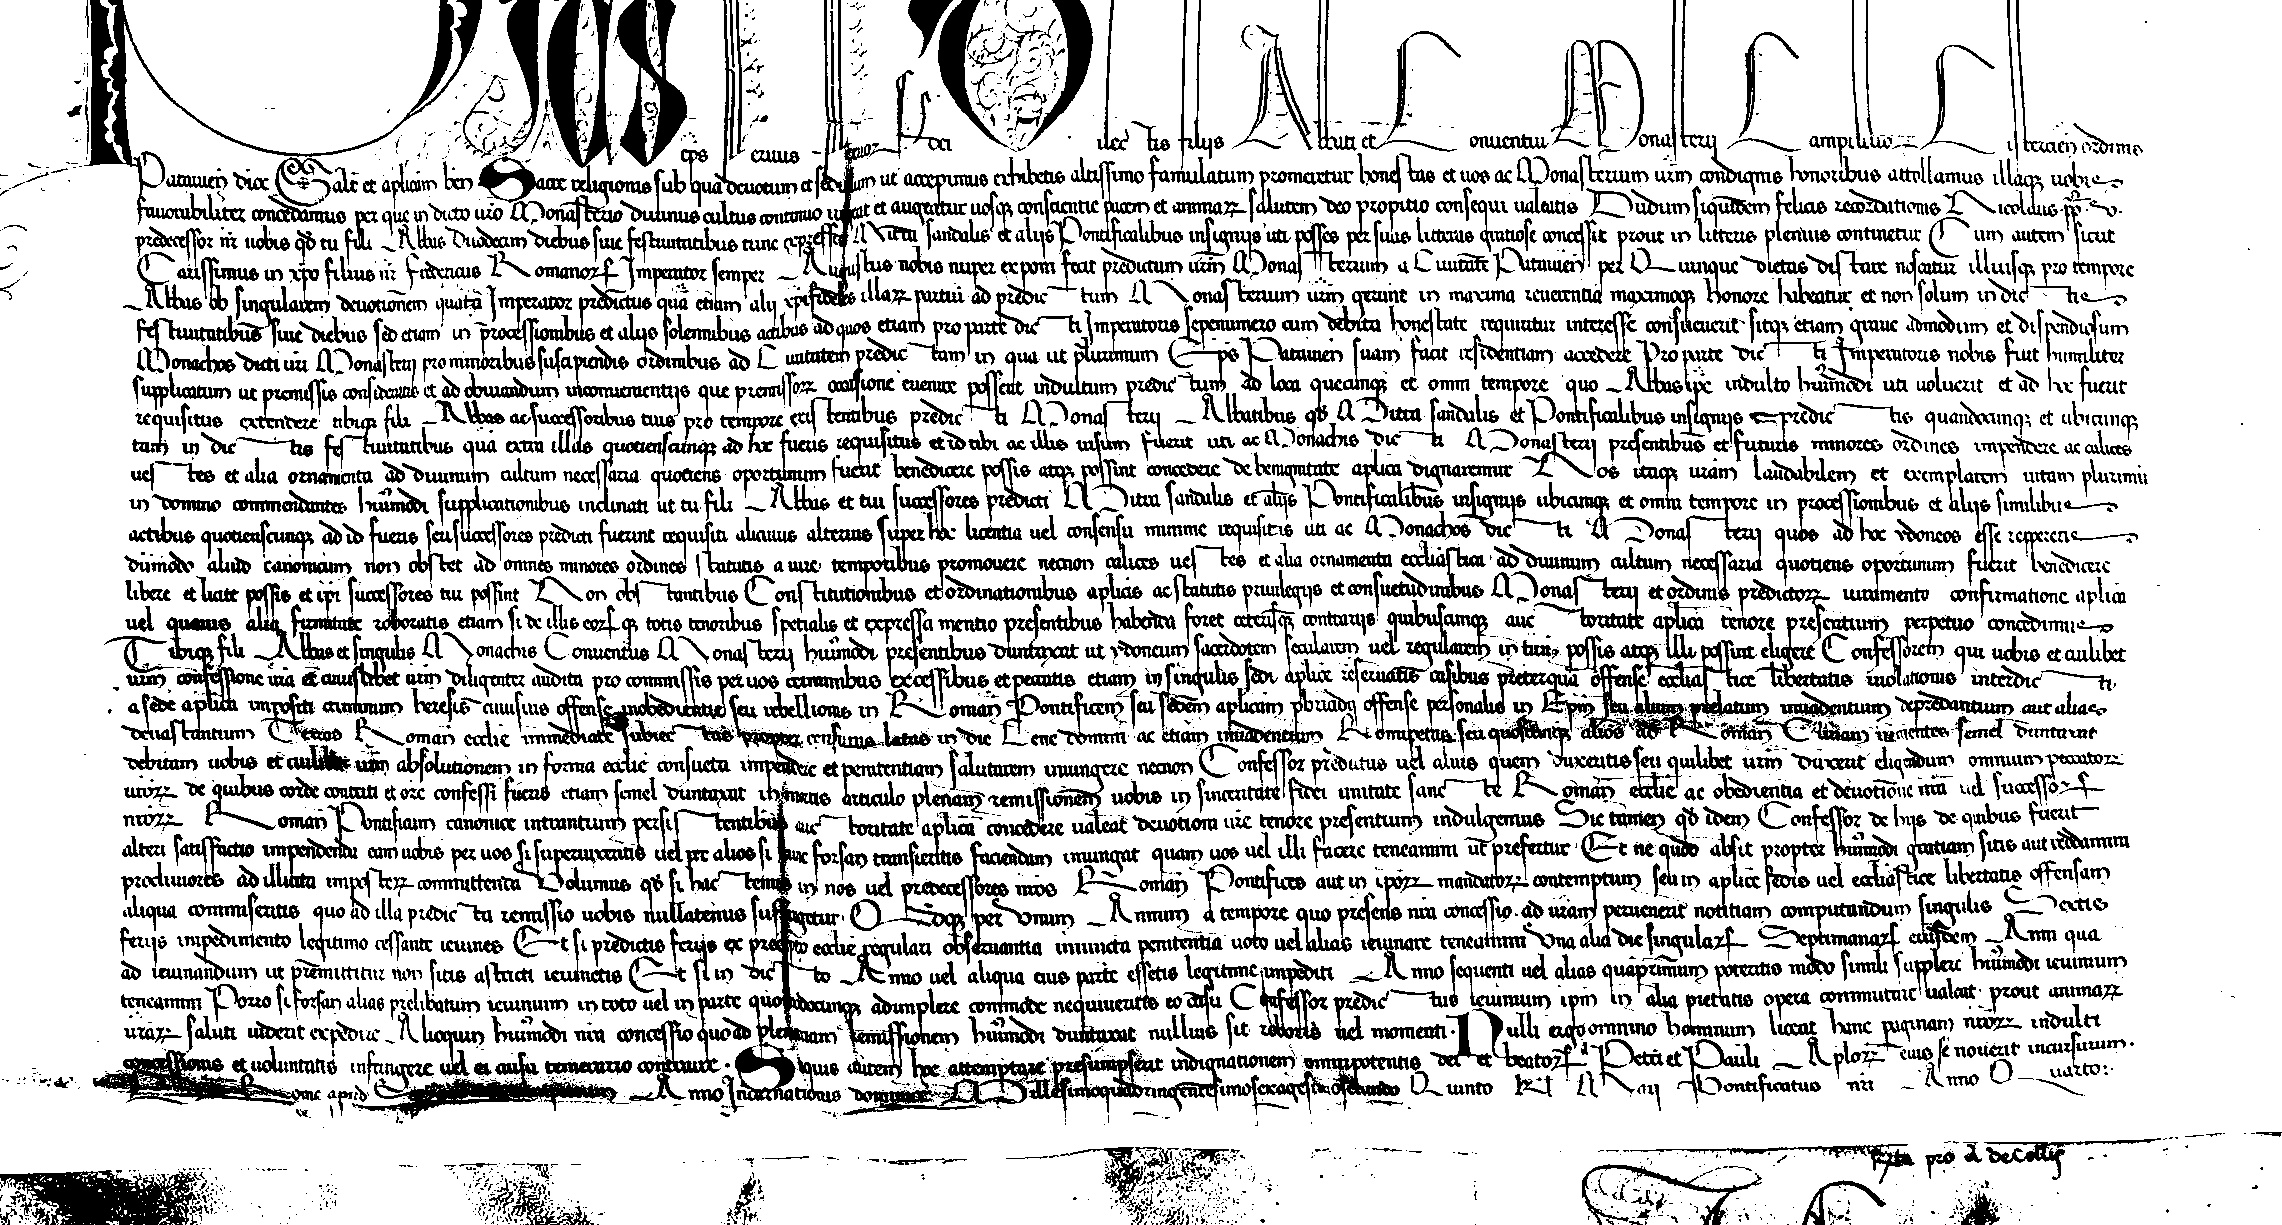 Pius eps seruus seruor dei dilectis filijs Abbati et Conuentui Monasterij Campililior Cistercien ordinis
Patauien dioc Salt et aplicam ben Sacre religionis sub qua deuotum et sedulum ut accepimus exhibetis altissimo famulatum promeretur honestas et uos ac Monasterium urm condignis honoribus attollamus illaqz uobis
fauorabiliter concedamus per que in dicto uro Monasterio diuinus cultus continuo uigeat et augeatur uosqz conscientie pacem et animarz salutem deo propitio consequi ualeatis Dudum siquidem felicis recordationis Nicolaus pp v.
predecessor nr uobis qd tu fili Abbas duodecim diebus siue festiuitatibus tunc expressis Mitra sandalijs et alijs Pontificalibus insignijs uti posses per suas litteras gratiose concessit prout in litteris plenius continetur Cum autem sicut
Carissimus in xpo filius nr Fridericus Romanorz Imperator semper Augustus nobis nuper exponi fecit predictum urm Monasterium a Ciuitate Patauien per Quinque dietas distare noscatur illiusqz pro tempore
Abbas ob singularem deuotionem quam Imperator predictus qua etiam alij xpifideles illarz partiu ad predictum Monasterium urm gerunt in maxima reuerentia maximoqz honore habeatur et non solum in dictis
festiuitatibus siue diebus sed etiam in processionibus et alijs solennibus actibus ad quos etiam pro parte dicti Imperatoris sepenumero cum debita honestate requiratur interesse consueuerit sitqz etiam graue admodum et dispendiosum
Monachos dicti uri Monasterij pro minoribus suscipiendis ordinibus ad Ciuitatem predictam in qua ut plurimum Eps Patauien suam facit residentiam accedere Pro parte dicti Imperatoris nobis fuit humiliter
supplicatum ut premissis consideratis et ad obuiandum inconuenientijs que premissorz occasione euenire possent indultum predictum ad loca quecunqz et omni tempore quo Abbas ipe indulto humodi uti uoluerit et ad hoc fuerit
requisitus extendere tibiqz fili Abbas ac successoribus tuis pro tempore existentibus predicti Monasterij Abbatibus qd Mitra sandalijs et Pontificalibus insignijs predictis quandocunqz et ubicunqz
tam in dictis festiuitatibus qua extra illas quotienscunqz ad hoc fueris requisitus et id tibi ac illis uisum fuerit uti ac Monachis dicti Monasterij presentibus et futuris minores ordines impendere ac calices
uestes et alia ornamenta ad diuinum cultum necessaria quotiens oportunum fuerit benedicere possis atqz possint concedere de benignitate aplica dignaremur Nos itaqz uram laudabilem et exemplarem uitam plurimu
in domino commendantes humodi supplicationibus inclinati ut tu fili Abbas et tui successores predicti Mitra sandalijs et alijs Pontificalibus insignijs ubicunqz et omni tempore in processionibus et alijs similibus
actibus quotienscunqz ad id fueris seu successores predicti fuerint requisiti alicuius alterius super hoc licentia uel consensu minime requisitis uti ac Monachos dicti Monasterij quos ad hoc ydoneos esse reppereris
dumodo aliud canonicum non obstet ad omnes minores ordines statutis a iure temporibus promouere necnon calices uestes et alia ornamenta ecclesiastica ad diuinum cultum necessaria quotiens oportunum fuerit benedicere
libere et licite possis et ipi successores tui possint Non obstantibus Constitutionibus et ordinationibus aplicis ac statutis priuilegijs et consuetudinibus Monasterij et ordinis predictorz iuramento confirmatione aplica
uel quauis alia firmitate roboratis etiam si de illis eorz qz totis tenoribus specialis et expressa mentio presentibus habenda foret ceterisqz contrarijs quibuscunqz auctoritate aplica tenore presentium perpetuo concedimus
Tibiqz fili Abbas et singulis Monachis Conuentus Monasterij humodi presentibus duntaxat ut ydoneum sacerdotem secularem uel regularem possis atqz illi possint eligere Confessorem qui uobis et cuilibet
urm confessione ura et cuiuslibet urm diligenter audita pro commissis per uos criminibus excessibus et peccatis etiam in singulis sedi aplice reseruatis casibus preterqua offense ecclesiastice libertatis uiolationis interdicti
a sede aplica impositi criminum heresis cuiusuis offense inobedientie seu rebellionis in Roman Pontificem seu sedem aplicam offense personalis in Epm seu alium prelatum inuadentium depredantium aut alias
deuastantium Terras Roman ecclie immediate subiectas consuras latas in die Cene domini ac etiam inuadentium Romipetas seu quoscunqz alios ad Roman Curiam uenientes semel duntaxat
debitam uobis et cuilibet urm absolutionem in forma ecclie consueta impendere et penitentiam salutarem iniungere necnon Confessor predictus uel alius quem duxeritis seu quilibet urm duxerit eligendum omnium peccatorz
urorz de quibus corde contriti et ore confessi fueritis etiam semel duntaxat in mortis articulo plenam remissionem uobis in sinceritate fidei unitate sancte Roman ecclie ac obedientia et deuotione nra uel successorz
nrorz Roman Pontificum canonice intrantium persistentibus auctoritate aplica concedere ualeat deuotioni ure tenore presentium indulgemus Sic tamen qd idem Confessor de hijs de quibus fuerit
alteri satisfactio impendenda eam uobis per uos si superuixeritis uel per alios si tunc forsan transieritis faciendam iniungat quam uos uel illi facere teneamini ut prefertur Et ne quod absit propter humodi gratiam sitis aut reddamini
procliuiores ad illicita imposterz committenda Volumus qd si hactenus in nos uel predecessores nros Roman Pontifices aut in iporz mandatorz contemptum seu in aplice sedis uel ecclesiastice libertatis offensam
aliqua commiseritis quo ad illa predicta remissio uobis nullatenus suffragetur Quodqz per Vnum Annum a tempore quo presens nra concessio ad uram peruenerit notitiam computandum singulis Sextis
ferijs impedimento legitimo cessante ieiunes Et si predictis ferijs ex precepto ecclie regulari obseruantia iniuncta penitentia uoto uel alias ieiunare teneamini Vna alia die singularz Septimanarz eiusdem Anni qua
ad ieiunandum ut premittitur non sitis astricti ieiunetis Et si in dicto Anno uel aliqua eius parte essetis legitime impediti Anno sequenti uel alias quaprimum poteritis modo simili supplere humodi ieiunium
teneamini Porro si forsan alias prelibatum ieiunium in toto uel in parte quomodocunqz adimplere commode nequiueritis eo casu Confessor predictus ieiunium ipm in alia pietatis opera commutare ualeat prout animarz
urarz saluti uiderit expedire Alioquin humodi nra concessio quo ad plenariam remissionem humodi duntaxat nullius sit roboris uel momenti. Nulli ergo omnino hominum liceat hanc paginam nrorz indulti
concessionis et uoluntatis infringere uel ei ausu temerario contraire. Siquis autem hoc attemptare presumpserit indignationem omnipotentis dei et beatorz Petri et Pauli Aplorz eius se nouerit incursurum.
Rome apud Sanctumpetrum Anno Incarnationis dominice Millesimoquadringentesimosexagesimosecundo Quinto kl Maij Pontificatus nri Anno Quarto:.
pro A de Collis